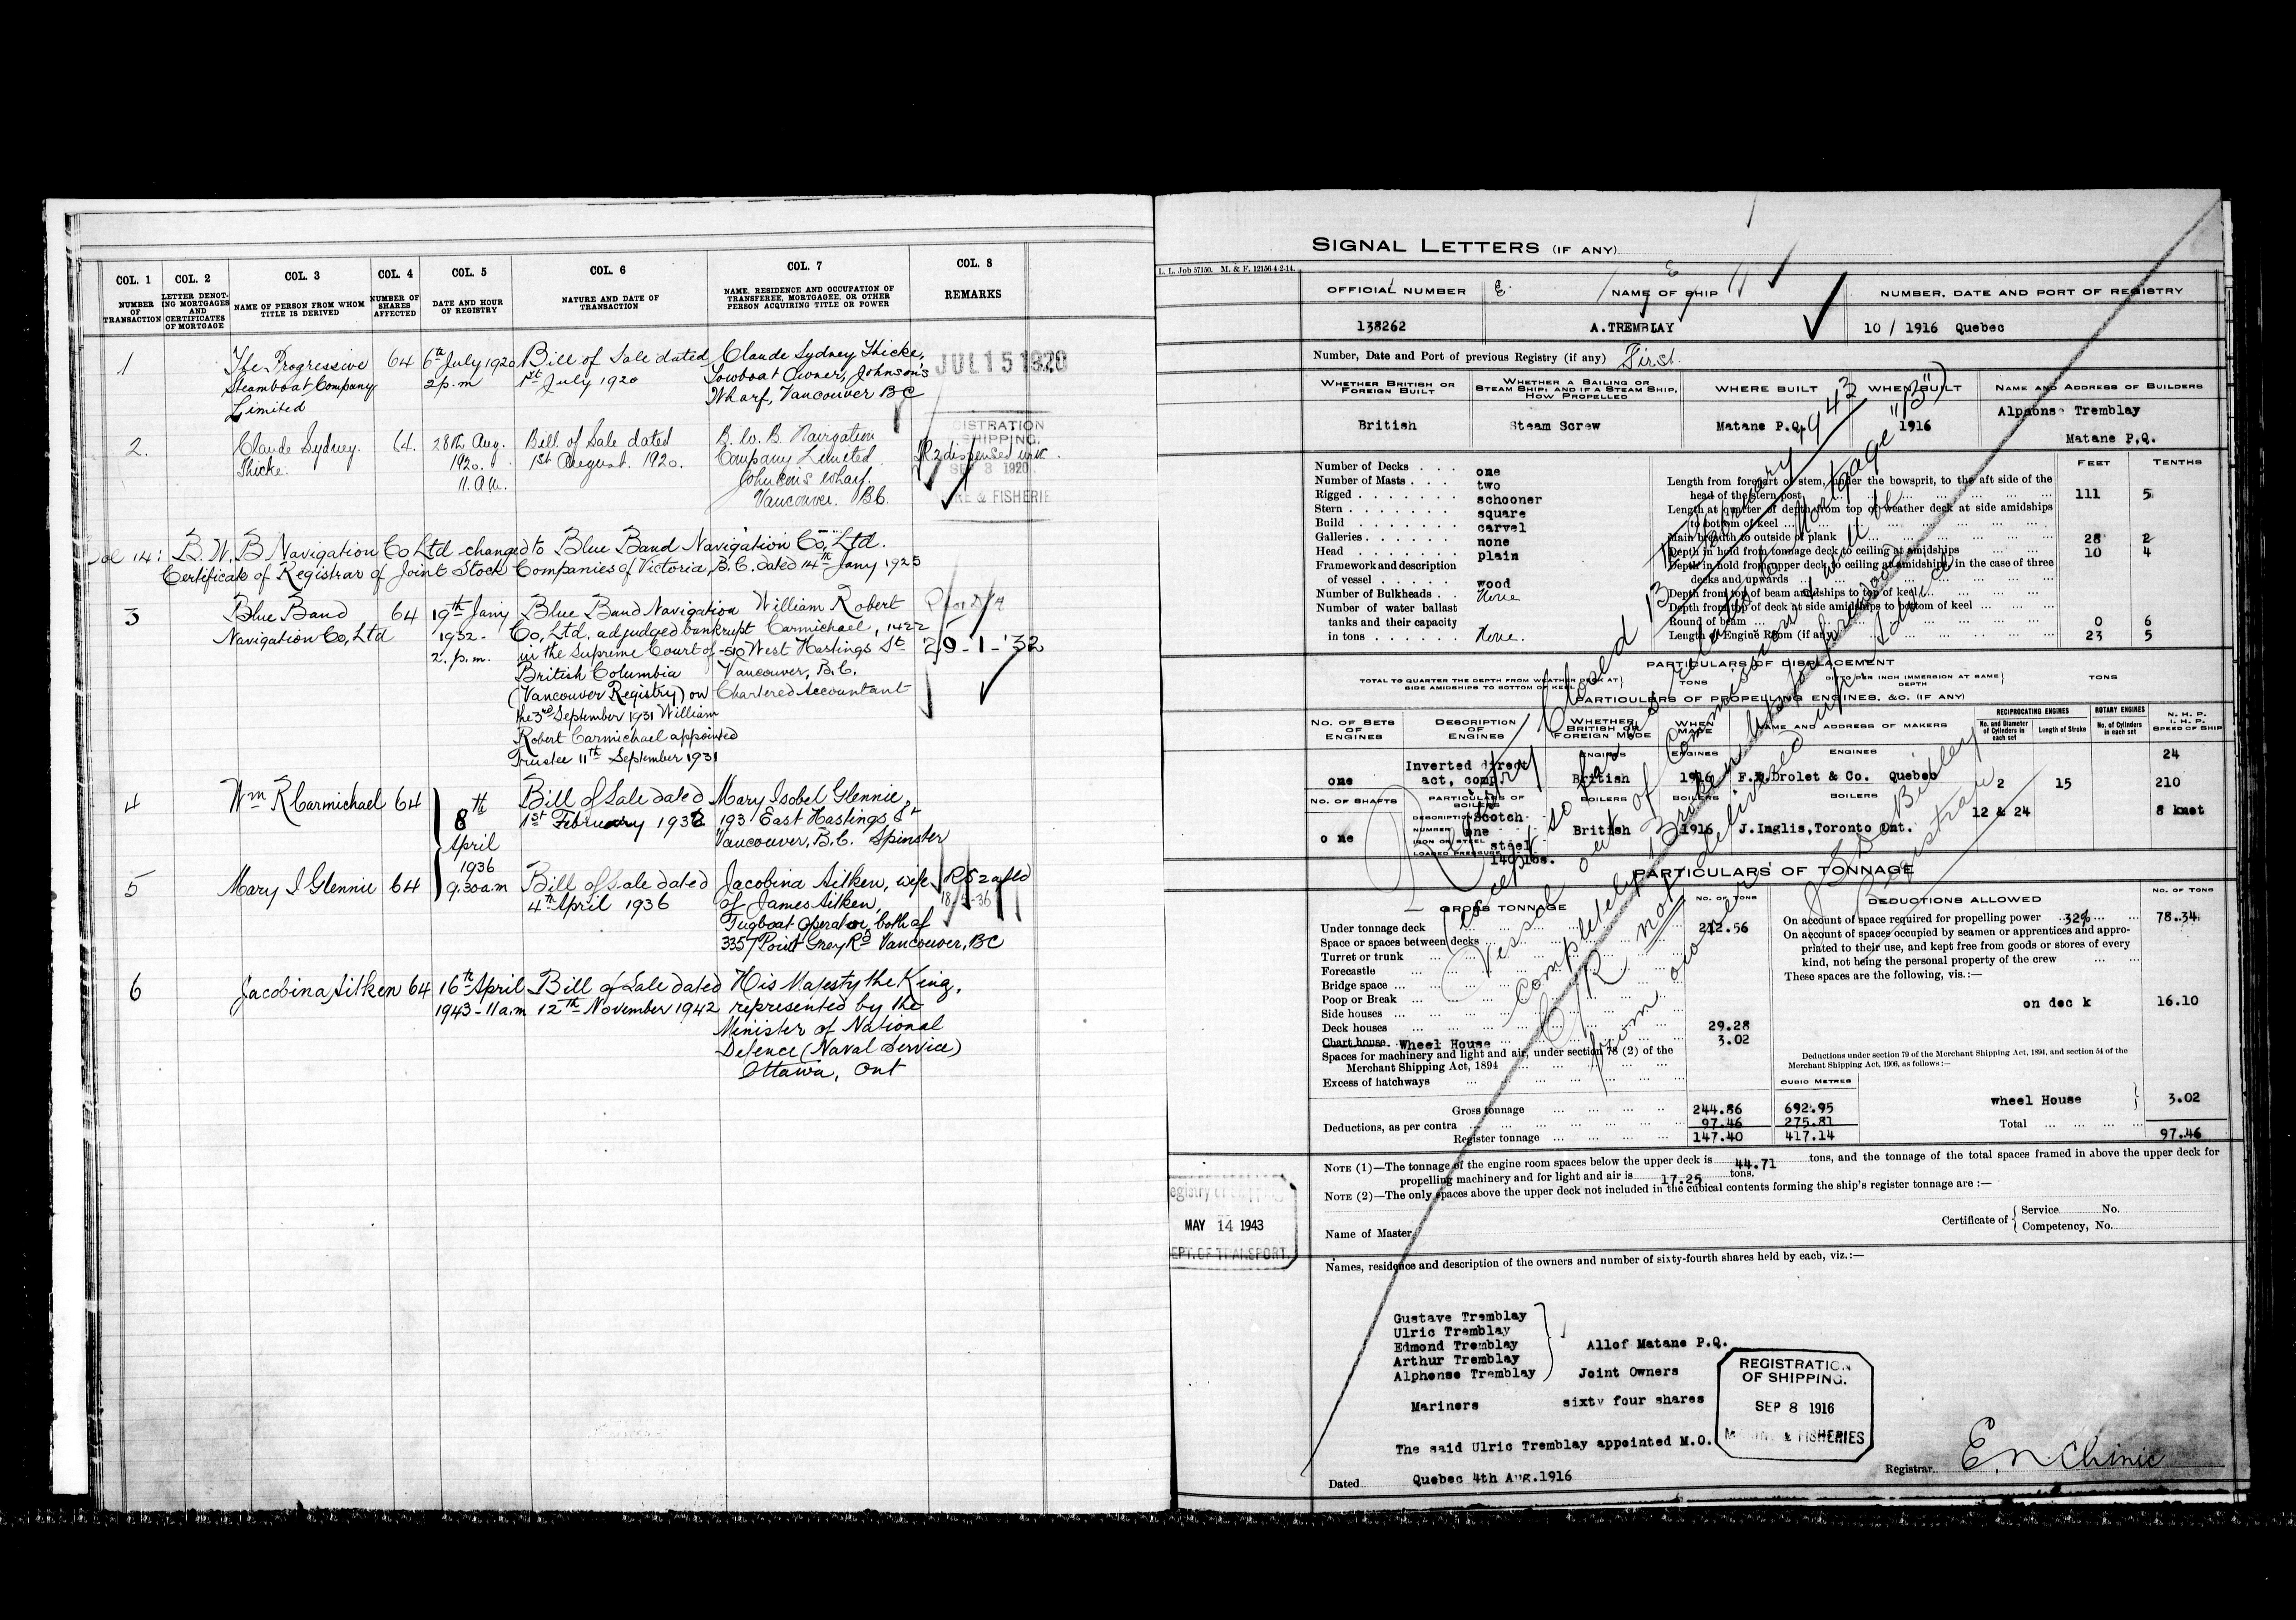 COL. 1 COL. 2 COL. 3 COL. 4 COL. 5 COL. 6 COL. 7 COL. 8
NUMBER OF TRANSACTION
LETTER DENOTING MORTGAGES AND CERTIFICATES OF MORTGAGE
NAME OF PERSON FROM WHOM TITLE IS DERIVED
NUMBER OF SHARES AFFECTED
DATE AND HOUR OF REGISTRY
NATURE AND DATE OF TRANSACTION
NAME, RESIDENCE AND OCCUPATION OF TRANSFEREE, MORTGAGEE, OR OTHER PERSON ACQUIRING TITLE OR POWER
REMARKS
1 The Progressive 64 6th July 1920 Bill of Sale dated Claude Sydney Thicke, JUL 15 1920
Steamboat Company 2 p.m 1st July 1920 Towboat Owner, Johnson's
Limited Wharf, Vancouver BC
2. Claude Sydney 64. 28th Aug. Bill of Sale dated B. W. B. Navigation
Thicke. 1920. 1st August. 1920. Company Limited
11. a.m. Johnson's Wharf.
Vancouver. B.C.
ISTRATION
SHIPPING.
SEP 3 1920
NE & FISHERIE
Vol 14: B. W. B Navigation Co Ltd changed to Blue Band Navigation Co, Ltd.
Certificate of Registrar of Joint Stock Companies of Victoria, B.C. dated 14th Jany 1925
3 Blue Band 64 19th Jany Blue Band Navigation William Robert
Navigation Co, Ltd 1932- Co, Ltd, adjudged bankrupt Carmichael, 1422
2. p.m. in the Supreme Court of -510 West Hastings St 29-1-'32
British Columbia Vancouver, B.C.
(Vancouver Registry) on Chartered Accountant
the 3rd September 1931 William
Robert Carmichael appointed
Trustee 11th September 1931
4 Wm R Carmichael 64 8th Bill of Sale dated Mary Isobel Glennie,
April 1st February 1932 193 East Hastings St
1936 Vancouver, B.C. Spinster
5 Mary I Glennie 64 9.30 a.m Bill of Sale dated Jacobina Aitken, wife
4th April 1936 of James Aitken,
Tugboat operator, both of
3357 Point Grey Rd Vancouver, BC
6 Jacobina Aitken 64 16th April Bill of Sale dated His Majesty the King,
1943-11 a.m 12th November 1942 represented by the
Minister of National
Defence (Naval Service)
Ottawa, Ont
SIGNAL LETTERS (IF ANY)
L. L. Job 57150. M. & F. 12156 4-2-14.
OFFICIAL NUMBER NAME OF SHIP NUMBER, DATE AND PORT OF REGISTRY
138262 A.TREMBLAY 10 / 1916 Quebec
Number, Date and Port of previous Registry (if any) First.
WHETHER BRITISH OR FOREIGN BUILT
WHETHER A SAILING OR STEAM SHIP, AND IF A STEAM SHIP, HOW PROPELLED
WHERE BUILT WHEN BUILT NAME AND ADDRESS OF BUILDERS
British Steam Screw Matane P.Q. 1916 Alphonse Tremblay
Matane P.Q.
FEET TENTHS
Number of Decks . . . one
Number of Masts . . . two
Rigged . . . schooner
Stern . . . square
Build . . . carvel
Galleries . . . none
Head . . . plain
Framework and description of vessel . . . wood
Number of Bulkheads . . None
Number of water ballast tanks and their capacity in tons . . . None.
Length from forepart of stem, under the bowsprit, to the aft side of the head of the stern post 111 5
Length at quarter of depth from top of weather deck at side amidships to bottom of keel
Main breadth to outside of plank 28 2
Depth in hold from tonnage deck to ceiling at amidships 10 4
Depth in hold from upper deck to ceiling at amidships, in the case of three decks and upwards
Depth from top of beam amidships to top of keel
Depth from top of deck at side amidships to bottom of keel
Round of beam 0 6
Length of Engine Room (if any) 23 5
PARTICULARS OF DISPLACEMENT
TOTAL TO QUARTER THE DEPTH FROM WEATHER DECK AT SIDE AMIDSHIPS TO BOTTOM OF KEEL TONS
DITTO PER INCH IMMERSION AT SAME DEPTH TONS
PARTICULARS OF PROPELLING ENGINES, &C. (IF ANY)
NO. OF SETS OF ENGINES
DESCRIPTION OF ENGINES
WHETHER BRITISH OR FOREIGN MADE
WHEN MADE
NAME AND ADDRESS OF MAKERS
RECIPROCATING ENGINES
No. and Diameter of Cylinders in each set
Length of Stroke
ROTARY ENGINES
No. of Cylinders in each set
N. H. P.
I. H. P.
SPEED OF SHIP
ENGINES ENGINES ENGINES 24
one Inverted direct act, comp. British 1916 F.X.Drolet & Co. Quebec 2 15 210
NO. OF SHAFTS PARTICULARS OF BOILERS BOILERS BOILERS BOILERS
12 & 24 8 knot
DESCRIPTION Scotch
NUMBER one
IRON OR STEEL steel
LOADED PRESSURE 140 lbs.
one British 1916 J.Inglis,Toronto Ont.
Registry Closed 13th February 1943
except so far as relates to Mortgage "B")
Vessel out of Commission and will be
completely broken up
C/R not delivered up
from owner
Registrar
PARTICULARS OF TONNAGE
GROSS TONNAGE NO. OF TONS DEDUCTIONS ALLOWED NO. OF TONS
Under tonnage deck 212.56
Space or spaces between decks
Turret or trunk
Forecastle
Bridge space
Poop or Break
Side houses
Deck houses 29.28
Chart house Wheel House 3.02
Spaces for machinery and light and air, under section 78 (2) of the Merchant Shipping Act, 1894
Excess of hatchways
On account of space required for propelling power 32% 78.34
On account of spaces occupied by seamen or apprentices and appropriated to their use, and kept free from goods or stores of every kind, not being the personal property of the crew
These spaces are the following, vis.:—
on deck 16.10
Deductions under section 79 of the Merchant Shipping Act, 1894, and section 54 of the Merchant Shipping Act, 1906, as follows:—
CUBIC METRES
Gross tonnage 244.86 692.95
Deductions, as per contra 97.46 275.81
Register tonnage 147.40 417.14
wheel House 3.02
Total 97.46
NOTE (1)—The tonnage of the engine room spaces below the upper deck is 44.71 tons, and the tonnage of the total spaces framed in above the upper deck for
propelling machinery and for light and air is 17.25 tons.
NOTE (2)—The only spaces above the upper deck not included in the cubical contents forming the ship's register tonnage are :—
Name of Master
Certificate of { Service No.
Competency, No.
MAY 14 1943
DEPT. OF TRANSPORT.
Names, residence and description of the owners and number of sixty-fourth shares held by each, viz.:—
Gustave Tremblay
Ulric Tremblay
Edmond Tremblay
Arthur Tremblay
Alphonse Tremblay
Allof Matane P.Q.
Joint Owners
Mariners sixty four shares
The said Ulric Tremblay appointed M.O.
REGISTRATION
OF SHIPPING.
SEP 8 1916
MARINE & FISHERIES
Dated Quebec 4th Aug.1916
Registrar